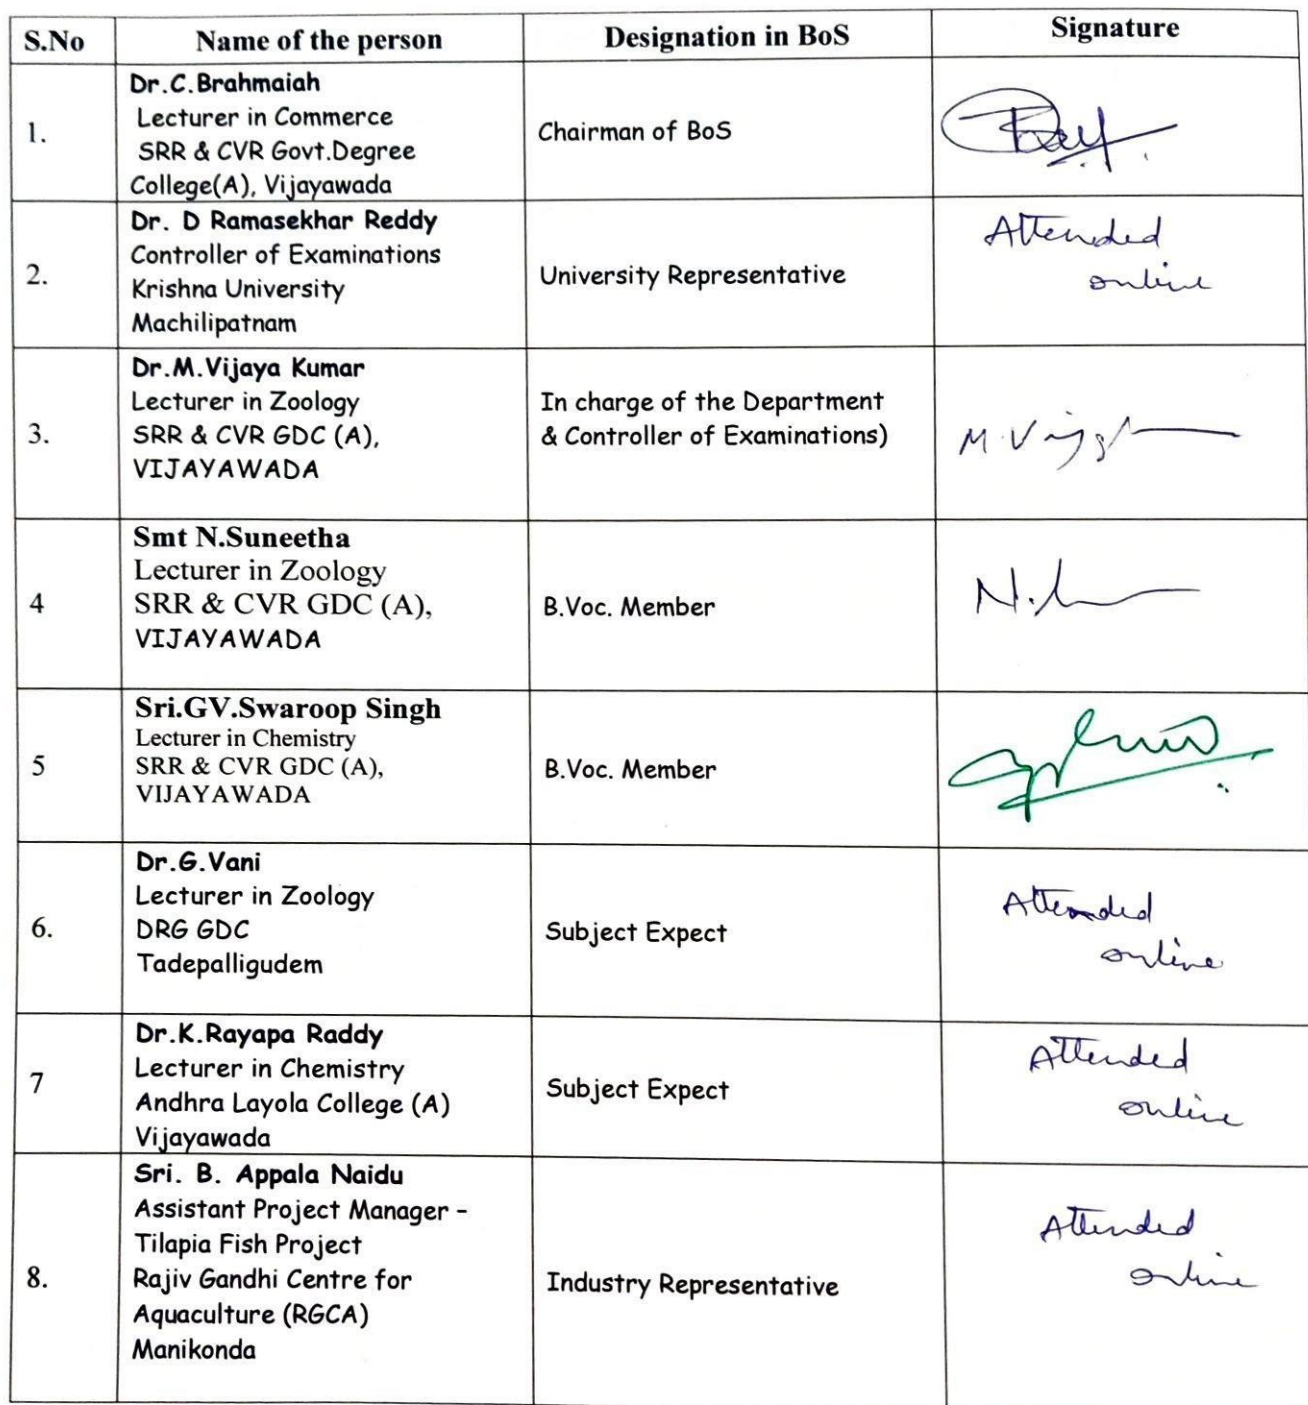 S.No Name of the person Designation in BoS Signature
1.
Dr.C.Brahmaiah
Lecturer in Commerce
SRR & CVR Govt.Degree
College(A), Vijayawada
Chairman of BoS
2.
Dr. D Ramasekhar Reddy
Controller of Examinations
Krishna University
Machilipatnam
University Representative
Attended
online
3.
Dr.M.Vijaya Kumar
Lecturer in Zoology
SRR & CVR GDC (A),
VIJAYAWADA
In charge of the Department
& Controller of Examinations)
4
Smt N.Suneetha
Lecturer in Zoology
SRR & CVR GDC (A),
VIJAYAWADA
B.Voc. Member
5
Sri.GV.Swaroop Singh
Lecturer in Chemistry
SRR & CVR GDC (A),
VIJAYAWADA
B.Voc. Member
6.
Dr.G.Vani
Lecturer in Zoology
DRG GDC
Tadepalligudem
Subject Expect
Attended
online
7
Dr.K.Rayapa Raddy
Lecturer in Chemistry
Andhra Layola College (A)
Vijayawada
Subject Expect
Attended
online
8.
Sri. B. Appala Naidu
Assistant Project Manager –
Tilapia Fish Project
Rajiv Gandhi Centre for
Aquaculture (RGCA)
Manikonda
Industry Representative
Attended
online